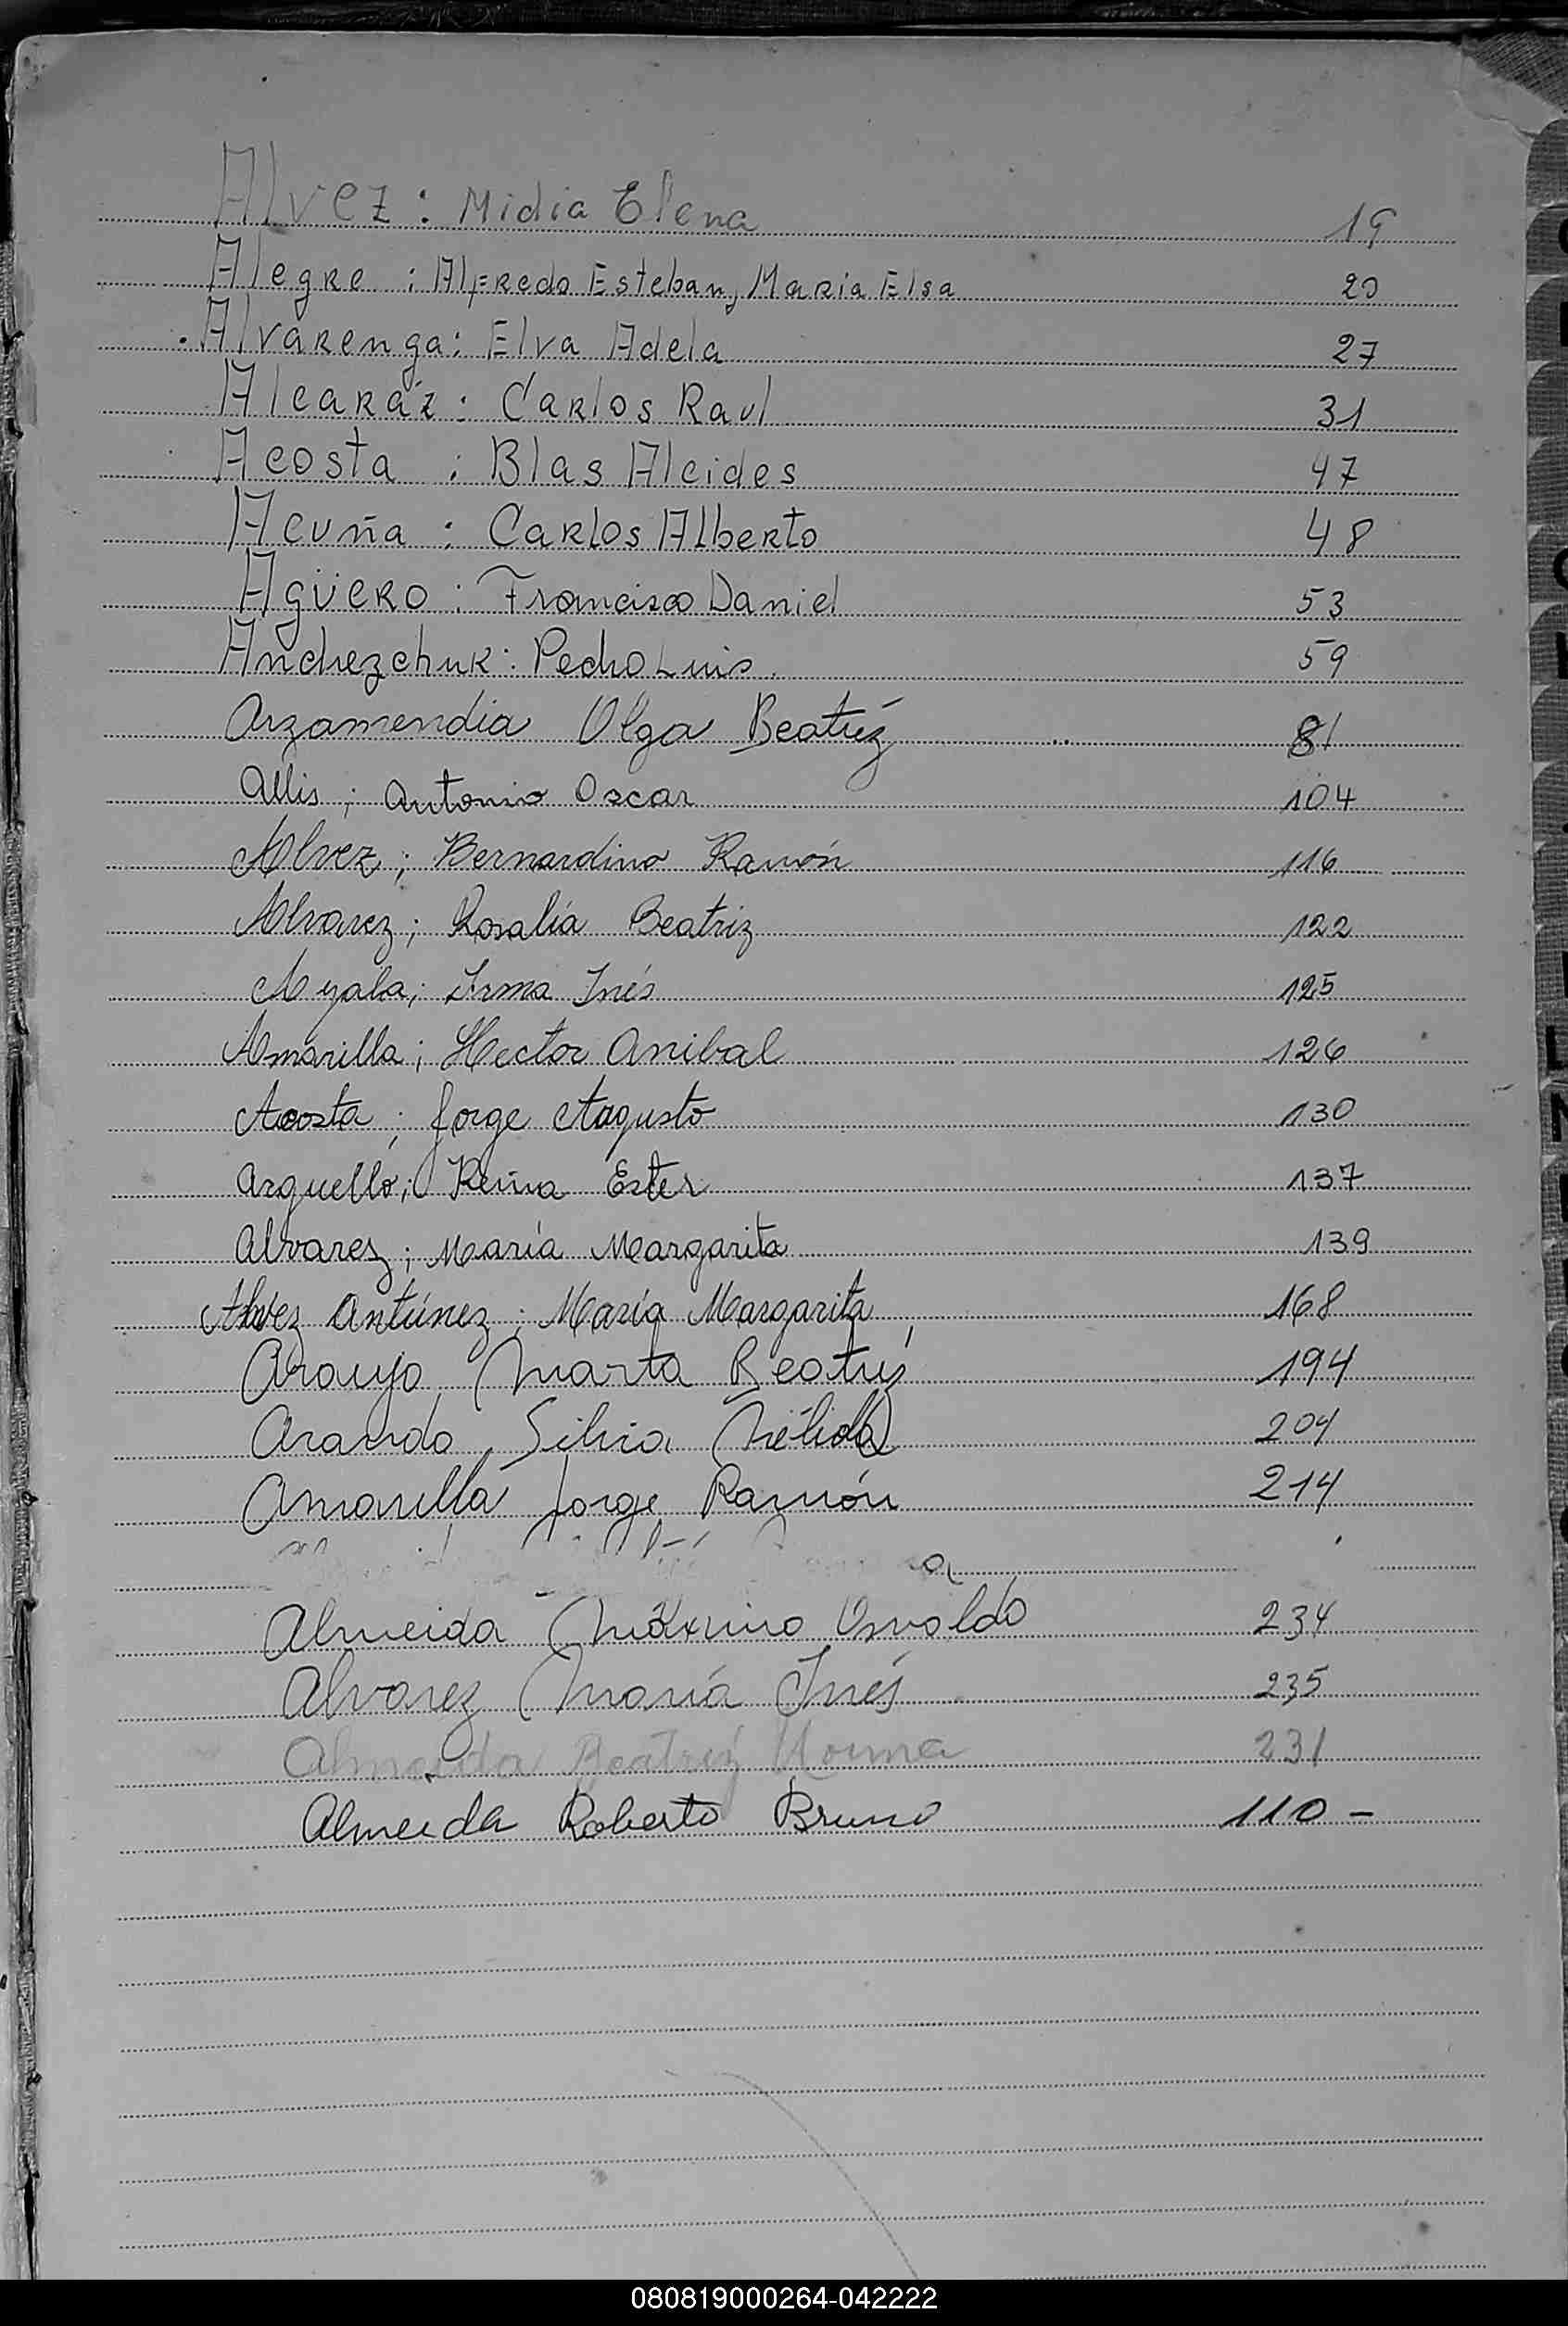 Alvez : Midia Elena 19
Alegre : Alfredo Esteban, Maria Elsa 20
Alvarenga : Elva Adela 27
Alcaráz : Carlos Raul 31
Acosta : Blas Alcides 47
Acuña : Carlos Alberto 48
Agüero : Francisco Daniel 53
Andrezchuk : Pedro Luis. 59
Arzamendia Olga Beatríz 81
Allis ; Antonio Oscar 104
Alvez ; Bernardino Ramón 116
Alvarez ; Rosalía Beatriz 122
Ayala ; Irma Inés 125
Amarilla ; Hector Anibal 126
Acosta ; Jorge Augusto 130
Arguello ; Reina Ester 137
Alvarez ; María Margarita 139
Alvez Antúnez ; María Margarita 168
Araujo, Marta Beatríz 194
Aranda, Silvia Nélida 204
Amarilla Jorge Ramón 214
Almeida Máximo Osvaldo 234
Alvarez María Inés 235
Almeida Beatríz Norma 231
Almeida Roberto Bruno 110 -
080819000264-042222